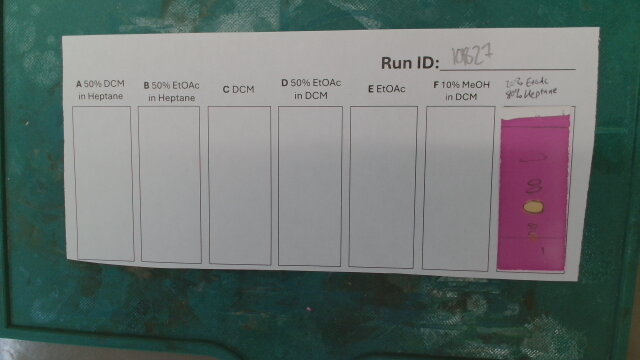 Run ID: 10827
A 50% DCM
in Heptane
B 50% EtOAc
in Heptane
C DCM
D 50% EtOAc
in DCM
E EtOAc
F 10% MeOH
in DCM
EtOAc
80% Heptane